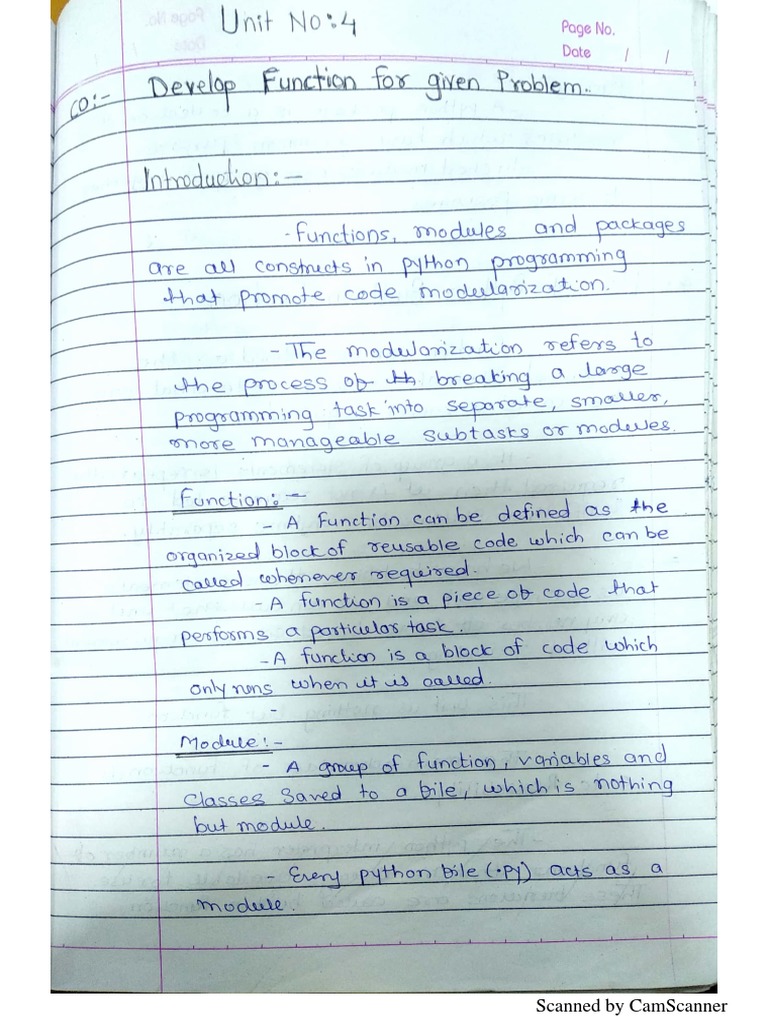 Unit No:4
Page No.
Date / /
CO:- Develop Function for given Problem.
Introduction:-
- Functions, modules and packages
are all constructs in python programming
that promote code modularization.
- The modularization refers to
the process of th breaking a large
programming task into separate, smaller,
more manageable subtasks or modules.
Function:-
- A function can be defined as the
organized block of reusable code which can be
called whenever required.
- A function is a piece of code that
performs a particular task.
- A function is a block of code which
only runs when it is called.
-
Module:-
- A group of function, variables and
classes saved to a file, which is nothing
but module.
- Every python file (.py) acts as a
module.
Scanned by CamScanner